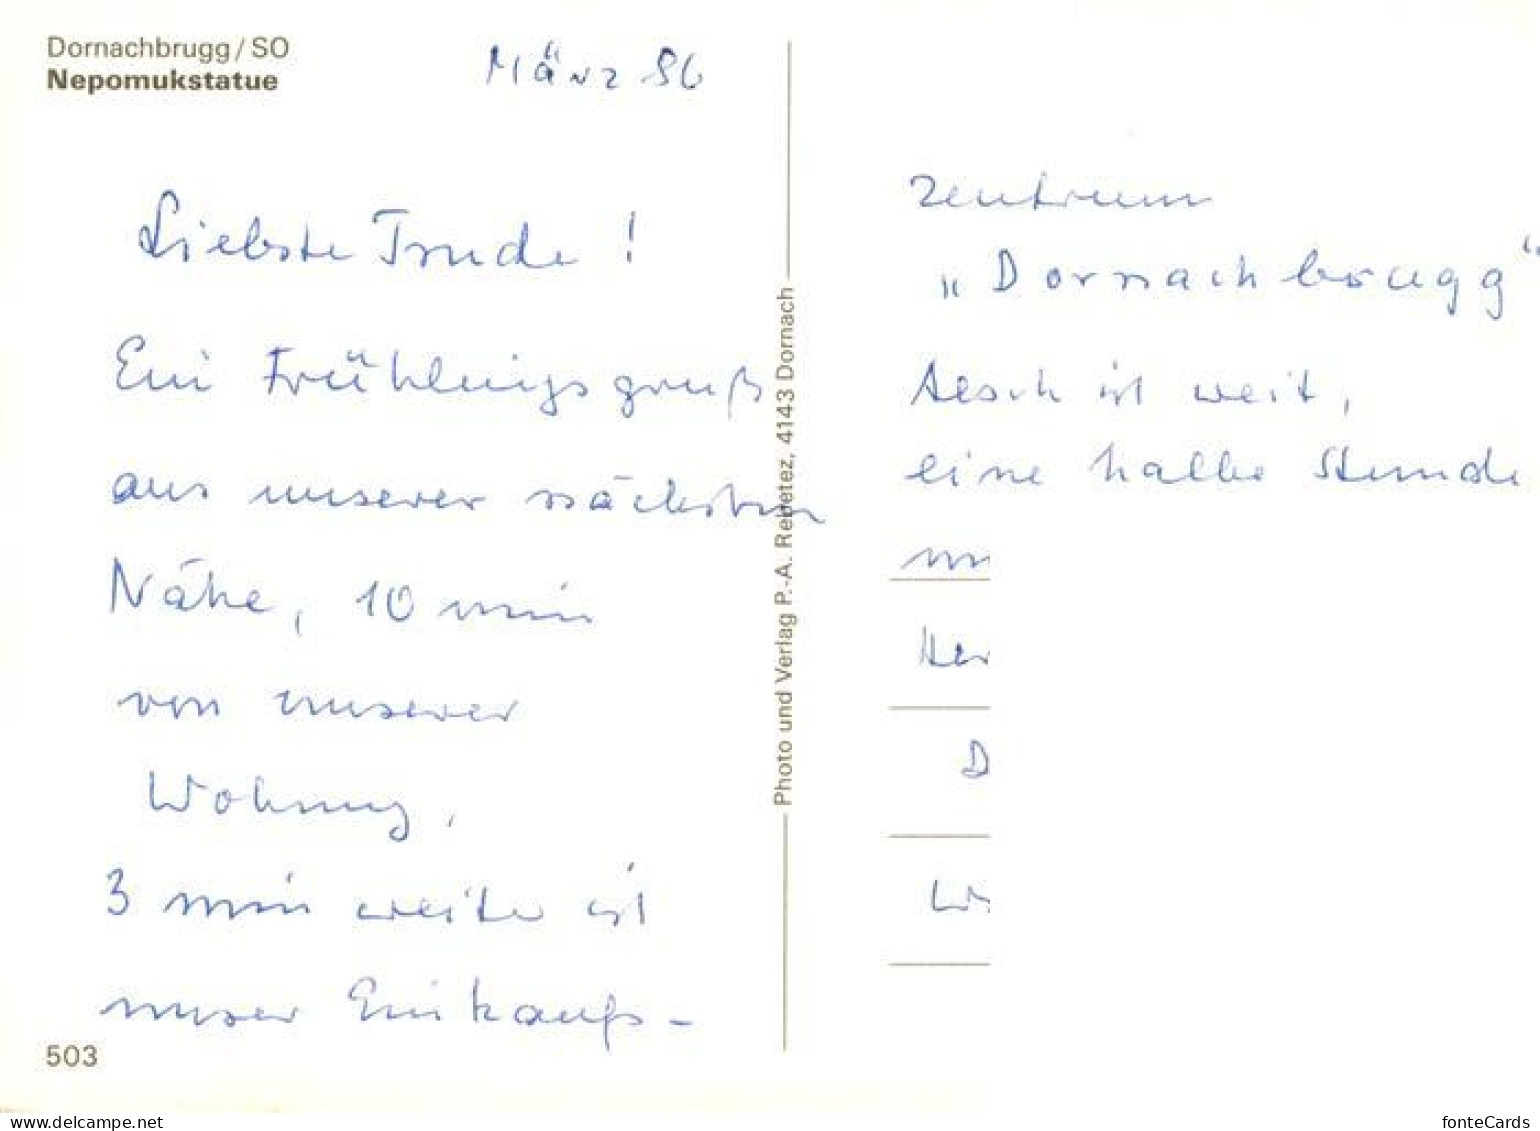 Dornachbrugg / SO
Nepomukstatue
März 86
Liebste Trude !
Ein Frühlingsgruß
aus unserer nächsten
Nähe, 10 min
von unserer
Wohnung.
3 min weiter ist
unser Einkaufs-
503
Photo und Verlag P.-A. Rebetez, 4143 Dornach
zentrum
„Dornachbrugg“
Aesch ist weit,
eine halbe Stunde
Her
D
delcampe.net
fonteCards